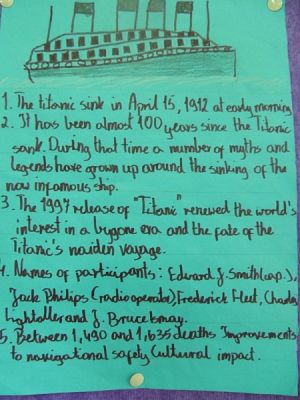 1. The titanic sink in April 15, 1912 at early morning
2. It has been almost 100 years since the Titanic
sank. During that time a number of myths and
legends have grown up around the sinking of the
now infamous ship.
3. The 1997 release of "Titanic" renewed the world's
interest in a bygone era and the fate of the
Titanic's maiden voyage.
4. Names of participants: Edward J. Smith (cap.),
Jack Philips (radio operator), Frederick Fleet, Charles
Lightoller and J. Bruce Ismay.
5. Between 1,490 and 1,635 deaths Improvements
to navigational safety Cultural impact.